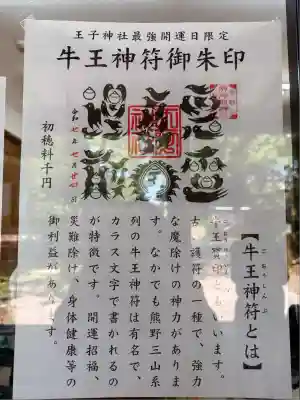 王子神社最強開運日限定
牛王神符御朱印
令和七年七月廿四日
初穂料千円
【牛王神符とは】
牛王宝印ともいいます。
古、護符の一種で、強力
な魔除けの神力がありま
す。なかでも熊野三山系
列の牛王神符は有名で、
カラス文字で書かれるの
が特徴です。開運招福、
災難除け、身体健康等の
御利益があります。